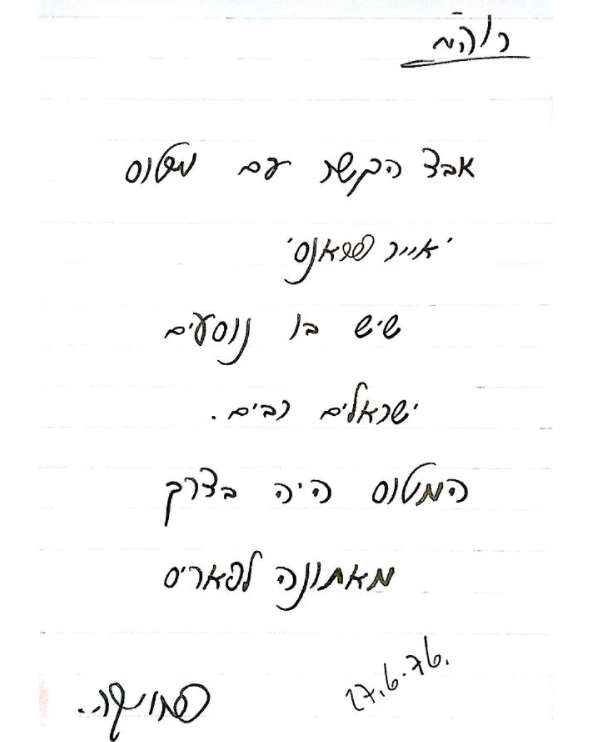 רוה"מ
אבד הקשר עם מטוס
'אייר פראנס'
שיש בו נוסעים
ישראלים רבים.
המטוס היה בדרך
מאתונה לפאריס
27.6.76.
פרויקה.